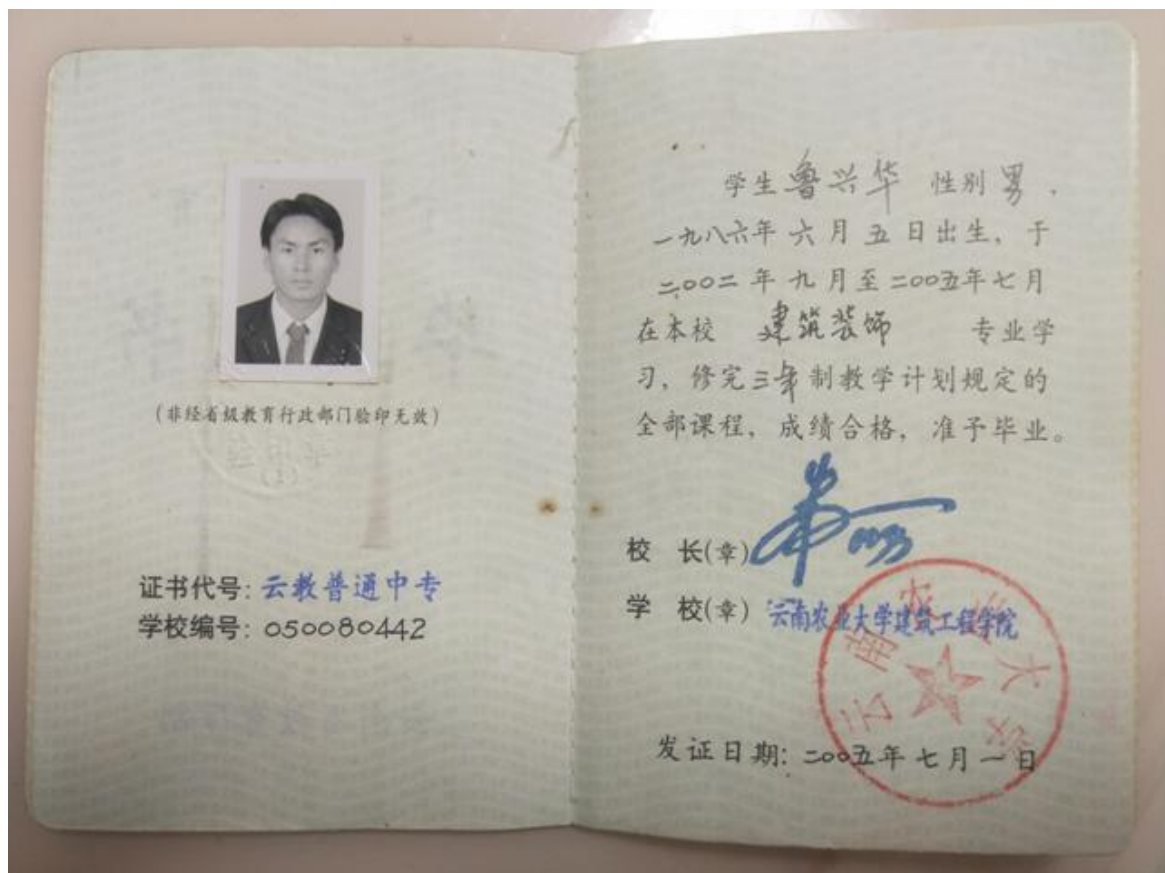 (非经省级教育行政部门验印无效)
证书代号: 云教普通中专
学校编号: 050080442
学生鲁兴华 性别男,
一九八六年六月五日出生, 于
二〇〇二年九月至二〇〇五年七月
在本校 建筑装饰 专业学
习, 修完三年制教学计划规定的
全部课程, 成绩合格, 准予毕业。
校 长(章)
学 校(章) 云南农业大学建筑工程学院
云南农业大学
发证日期: 二〇〇五年七月一日